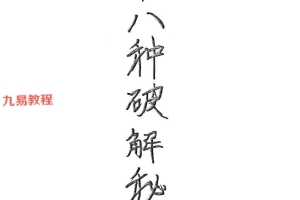 八种破解秘
九易教程